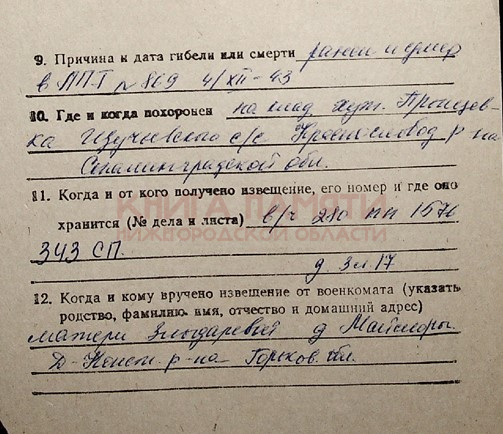 9. Причина и дата гибели или смерти ранен и умер
в ППГ № 869 4/XII-43
10. Где и когда похоронен на клад. хут. Пронцев-
ка с/с Краснослобод. р-на
Сталинградской обл.
11. Когда и от кого получено извещение, его номер и где оно
хранится (№ дела и листа) в/ч 280 пп 1576
343 СП.
д. 3 л. 17
12. Когда и кому вручено извещение от военкомата (указать
родство, фамилию имя, отчество и домашний адрес)
матери д
Д-Конст. р-на Горьков. обл.
КНИГА ПАМЯТИ
НИЖЕГОРОДСКОЙ ОБЛАСТИ